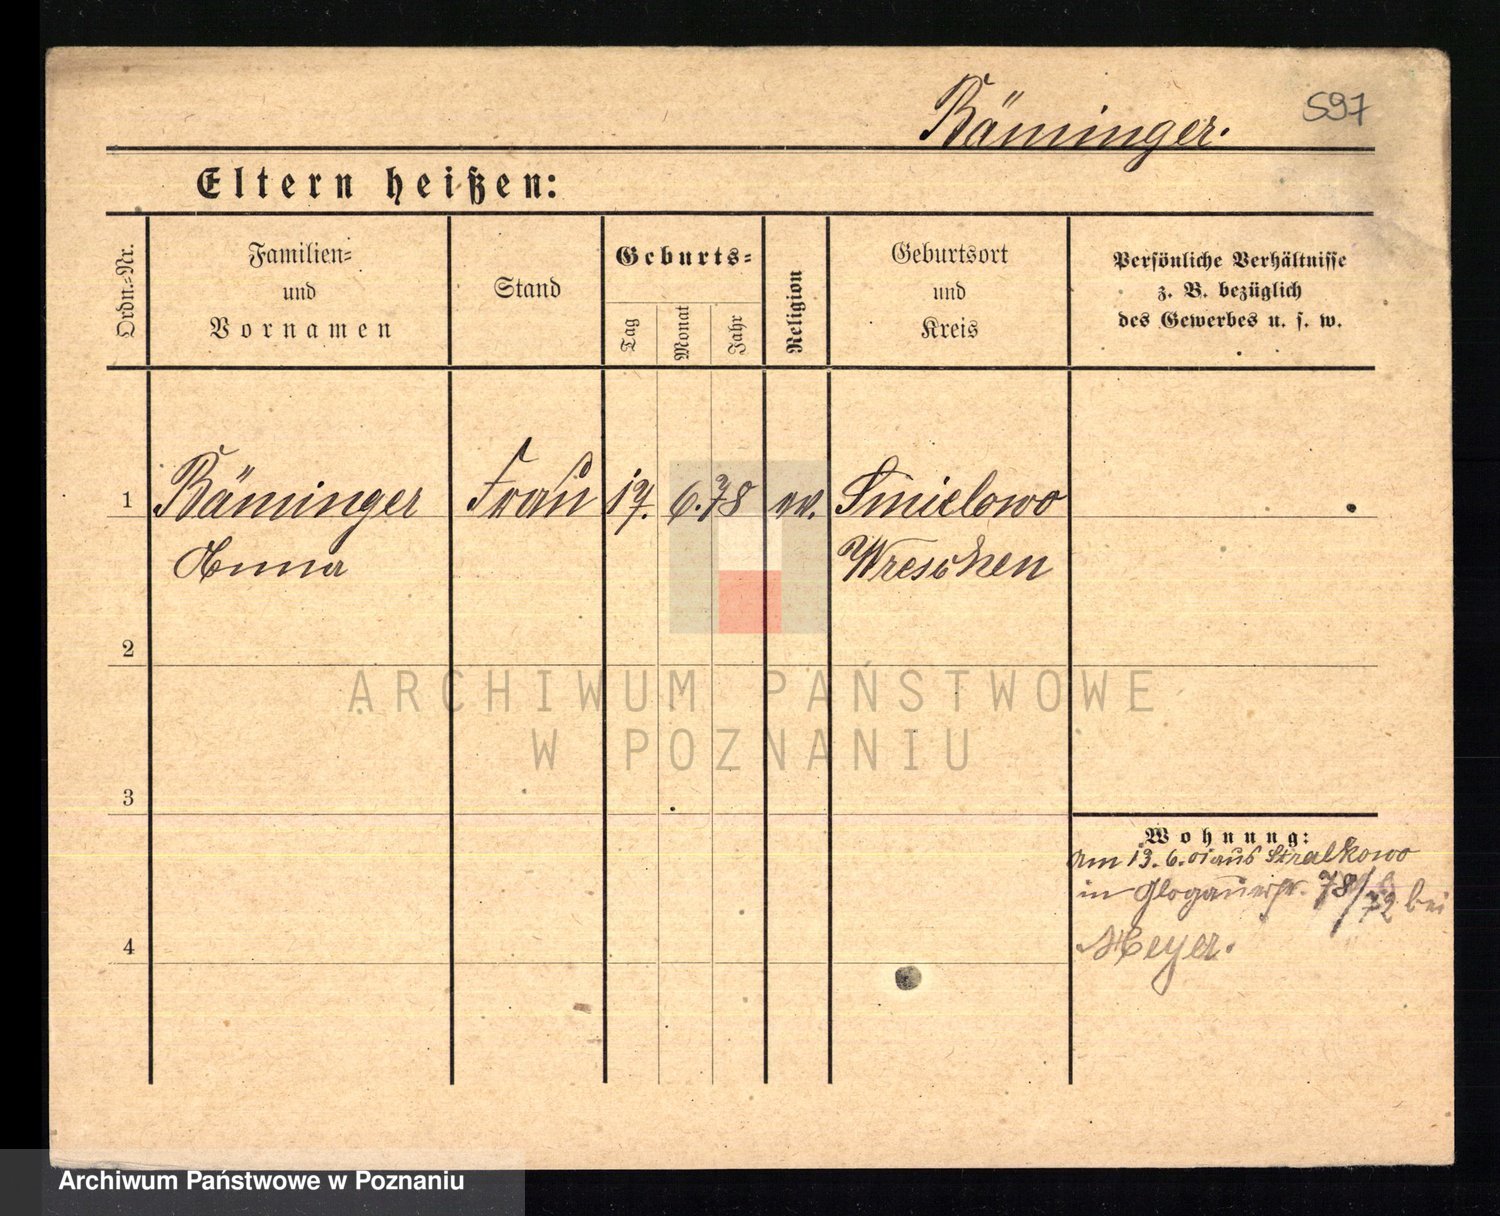 Bäminger.
597
Eltern heißen:
Ordn.-Nr.
Familien-
und
Vornamen
Stand
Geburts-
Tag
Monat
Jahr
Religion
Geburtsort
und
Kreis
Persönliche Verhältnisse
z. B. bezüglich
des Gewerbes u. s. w.
1 Bäminger Frau 17. 6. 78 Smielowo
Anna Wreschen
2
ARCHIWUM PAŃSTWOWE
W POZNANIU
3
Wohnung:
Am 13. 6. 01 aus Stralkowo
in Glogauerstr. 78/72 bei
Meyer.
4
Archiwum Państwowe w Poznaniu